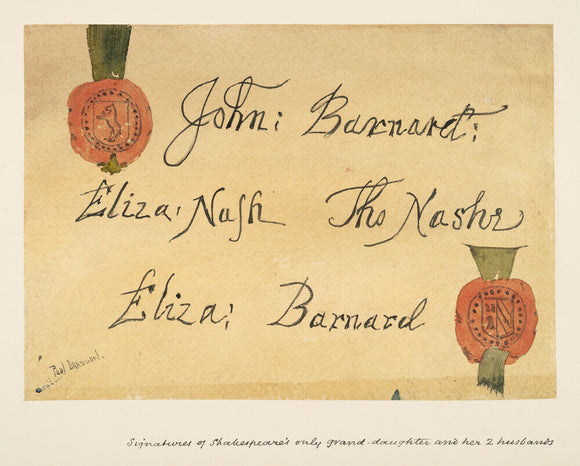 John: Barnard:
Eliza: Nash Tho Nashe
Eliza: Barnard
Signatures of Shakespeare's only grand-daughter and her 2 husbands